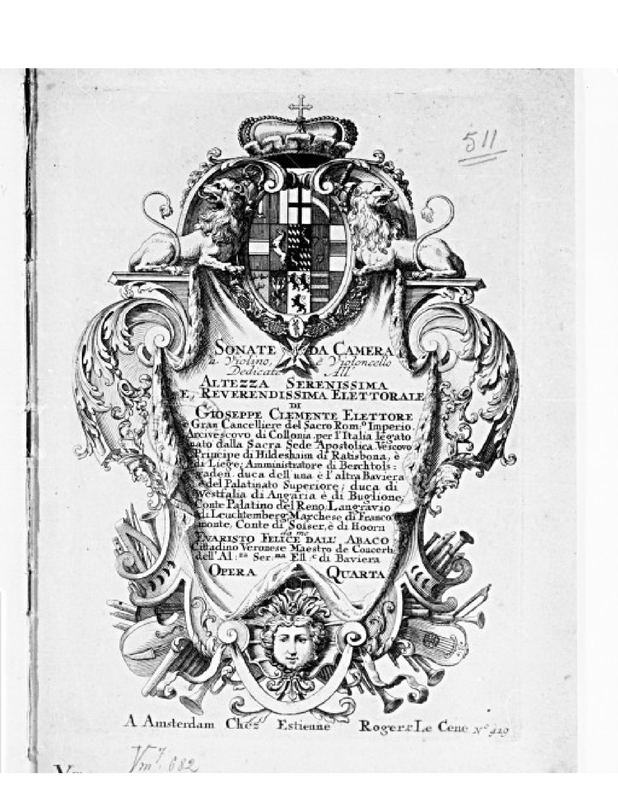 511
SONATE DA CAMERA
a Violino, e Violoncello
Dedicate All'
ALTEZZA SERENISSIMA
E, REVERENDISSIMA ELETTORALE
DI
GIOSEPPE CLEMENTE ELETTORE
e Gran Cancelliere del Sacro Rom:o Imperio
Arcivescovo di Collonia, per l'Italia legato
nato dalla Sacra Sede Apostolica Vescovo
Principe di Hildeshaim di Ratisbona, è
di Liege; Amministratore di Berchtols:
gaden duca dell una è l'altra Baviera
è del Palatinato Superiore; duca di
Westfalia di Angaria è di Buglione;
Conte Palatino del Reno, Langravio
di Leuchtemberg, Marchese di Franco
monte, Conte di Soiser, è di Hoorn
da me
EVARISTO FELICE DALL' ABACO
Cittadino Veronese Maestro de Concerti
dell'Al:za Ser:ma Ell:e di Baviera
OPERA QUARTA
A Amsterdam Chez Estienne Roger & Le Cene No 429
Vm7. 682